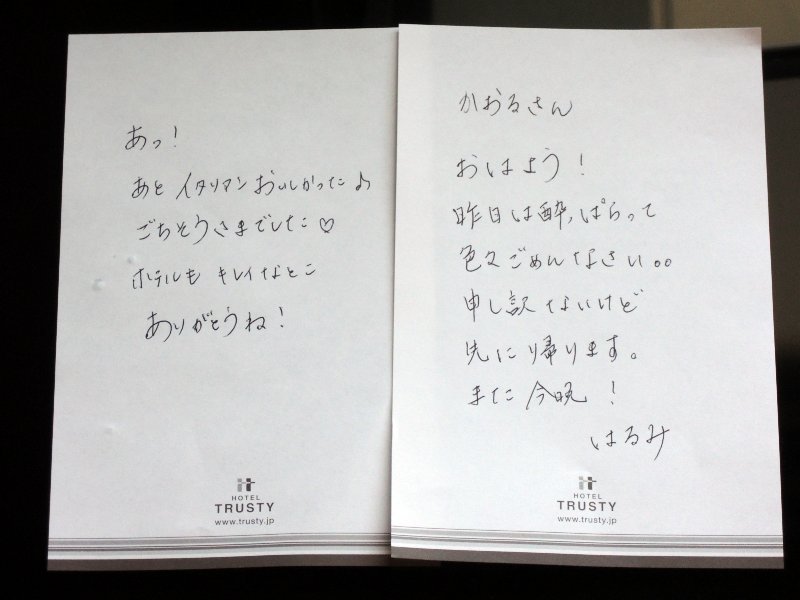 あっ!
あと イタリアン おいしかった♪
ごちそうさまでした♡
ホテルも キレイなとこ
ありがとうね!
HOTEL
TRUSTY
www.trusty.jp
かおるさん
おはよう!
昨日は酔っぱらって
色々ごめんなさい。。
申し訳ないけど
先に帰ります。
また今晩!
はるみ
HOTEL
TRUSTY
www.trusty.jp